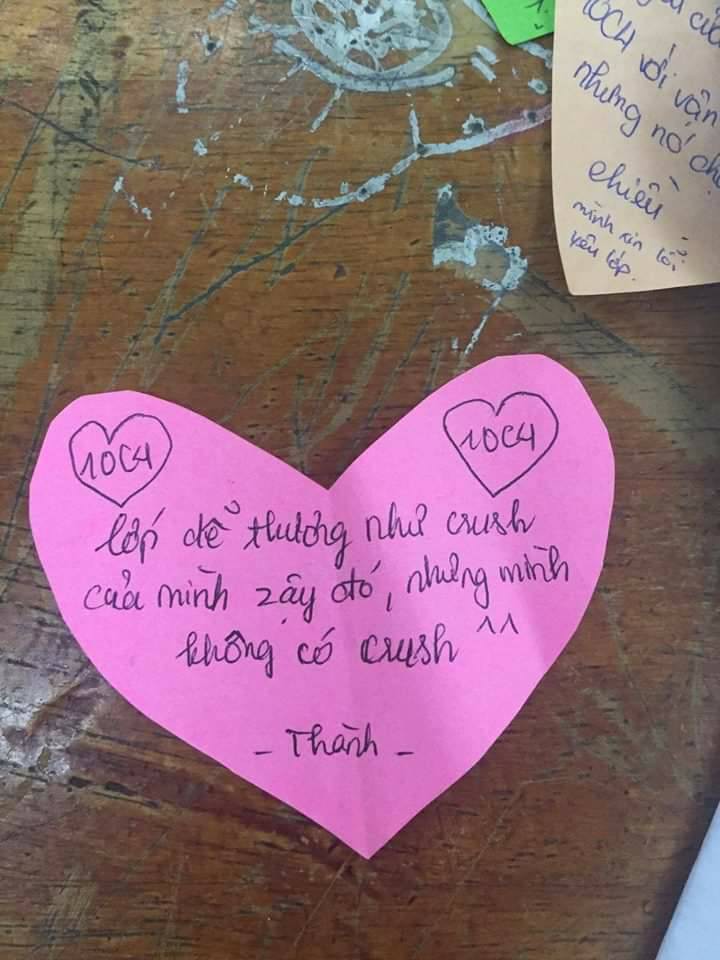 1.
10C4 với vận
nhưng nó
chiều
mình xin lỗi
yêu lớp.
10C4
10C4
lớp dể thương như crush
của mình zậy đó, nhưng mình
không có crush ^^
- Thành -